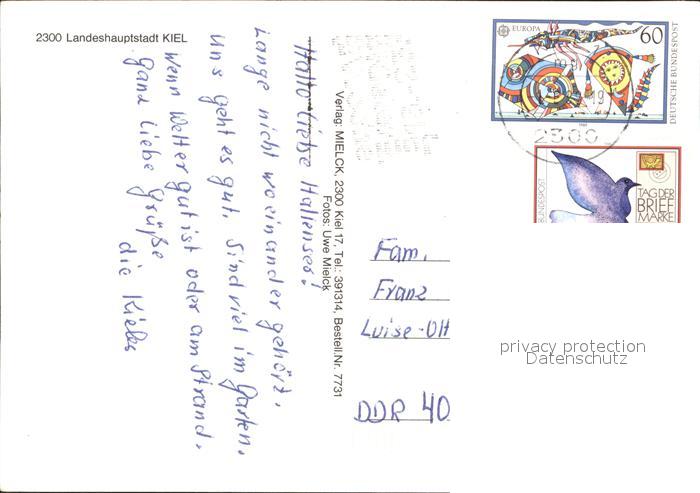 2300 Landeshauptstadt KIEL
Hallo liebe Halienser!
Lange nicht voneinander gehört.
Uns geht es gut. Sind viel im Garten,
wenn Wetter gut ist oder am Strand.
Ganz liebe Grüße
die Kieler
Verlag: MIELCK, 2300 Kiel 17, Tel.: 391314, Bestell.Nr. 7731
Fotos: Uwe Mielck
EUROPA
60
DEUTSCHE BUNDESPOST
2300
BUNDESPOST
TAG DER
BRIEF
MARKE
Fam.
Franz
Luise-Ott
DDR 40
privacy protection
Datenschutz